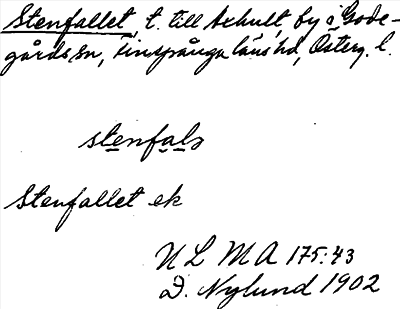 Stenfallet, t. till Axhult, by i Gode-
gårds sn, Finspånga läns hd, Österg. l.
stenfals
Stenfallet ek
ULMA 175:43
D. Nylund 1902